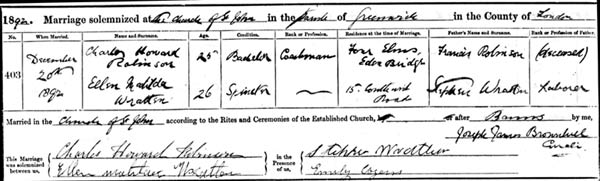 1892. Marriage solemnized at the Church of St John in the Parish of Greenwich in the County of London
No. When Married. Name and Surname. Age. Condition. Rank or Profession. Residence at the time of Marriage. Father's Name and Surname. Rank or Profession of Father.
403 December 20th 1892 Charles Howard Robinson 25 Bachelor Coachman Four Elms, Eden Bridge Francis Robinson (deceased)
Ellen Matilda Wratten 26 Spinster — 15 Road Stephen Wratten Labourer
Married in the Church of St John according to the Rites and Ceremonies of the Established Church, after Banns by me,
Joseph James
Curate
This Marriage was solemnized between us, Charles Howard Robinson
Ellen Matilda Wratten
in the Presence of us, Stephen Wratten
Emily